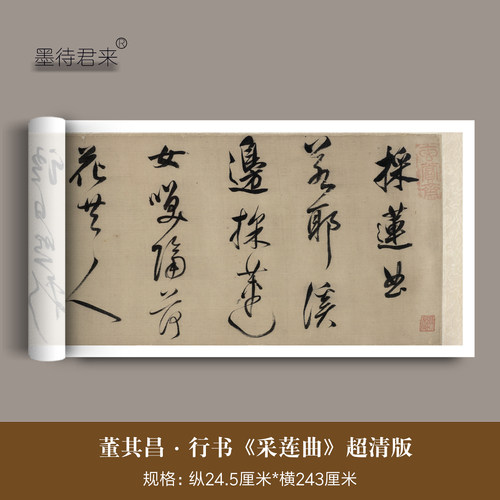 墨待君来®
採蓮曲
若耶溪
邊採蓮
女咲隔荷
花共人
董其昌·行书《采莲曲》超清版
规格：纵24.5厘米*横243厘米